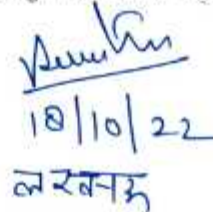 18/10/22
लखनऊ